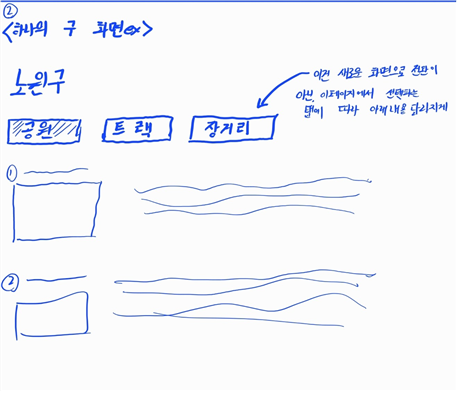 ②
<하나의 구 화면ex>
노원구
공원 트랙 장거리
이건 새로운 화면으로 전환이
아닌, 이페이지에서 선택하는
탭에 따라 아래내용 달라지게
①
②